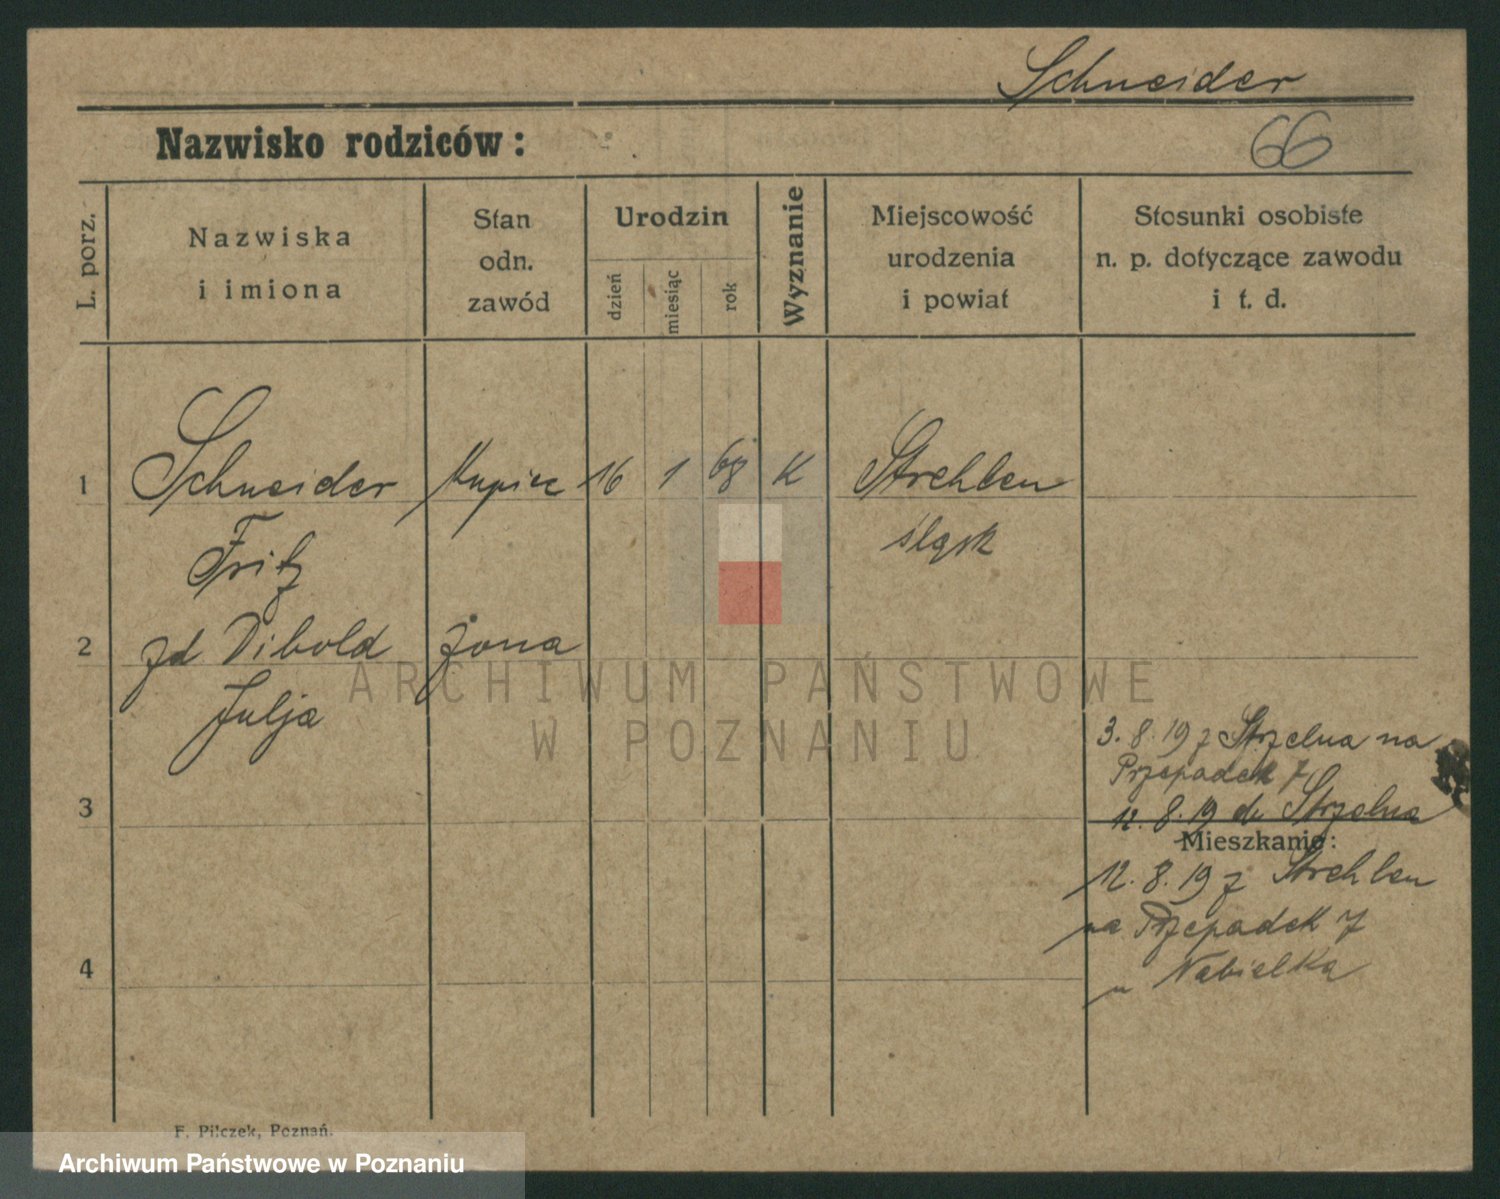 Schneider
Nazwisko rodziców:
66
L. porz.
Nazwiska
i imiona
Stan
odn.
zawód
Urodzin
dzień
miesiąc
rok
Wyznanie
Miejscowość
urodzenia
i powiat
Stosunki osobiste
n. p. dotyczące zawodu
i t. d.
1 Schneider Kupiec 16 1 68 K Strehlen
Fritz śląsk
2 zd Dibold żona
Julja
ARCHIWUM PAŃSTWOWE
W POZNANIU
3. 8. 19 z Strzelna na
Przepadek 7
3
12. 8. 19 do Strzelna
Mieszkanie:
12. 8. 19 z Strehlen
na Przepadek 7
4
u Nabielka
F. Pilczek, Poznań.
Archiwum Państwowe w Poznaniu